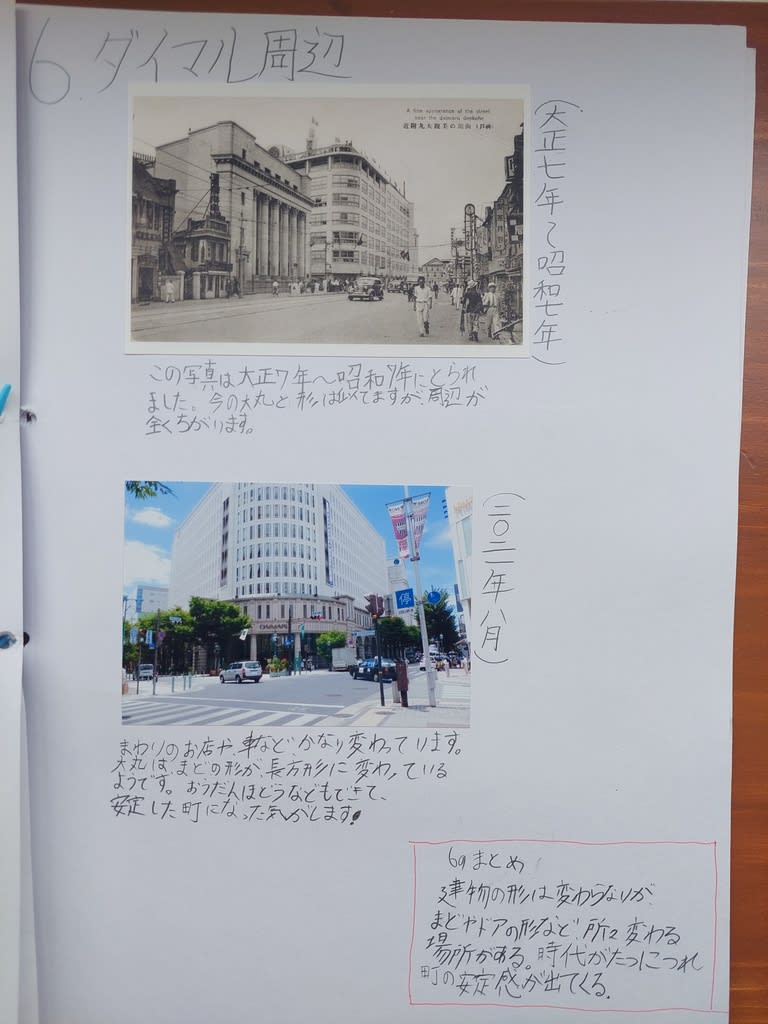 6.ダイマル周辺
A fine appearance of the street
near the daimaru
近附丸大観美の街市(神戸)
(大正七年〜昭和七年)
この写真は大正7年〜昭和7年にとられ
ました。今の大丸と形は似てますが、周辺が
全くちがいます。
(二〇二一年八月)
停
DAIMARU
まわりのお店や、車など、かなり変わっています。
大丸は、まどの形が、長方形に変わっている
ようです。おうだんほどうなどもできて、
安定した町になった気がします!
6のまとめ
建物の形は変わらないが、
まどやドアの形など、所々変わる
場所がある。時代がたつにつれ
町の安定感が出てくる。